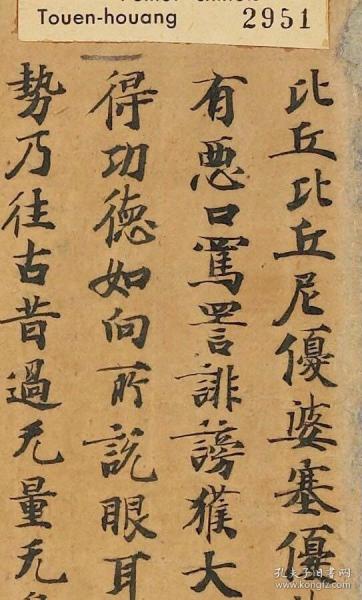 Touen-houang 2951
比丘比丘尼優婆塞優
有惡口罵詈誹謗獲大
得功德如向所說眼耳
勢乃往古昔過无量无
孔夫子旧书网